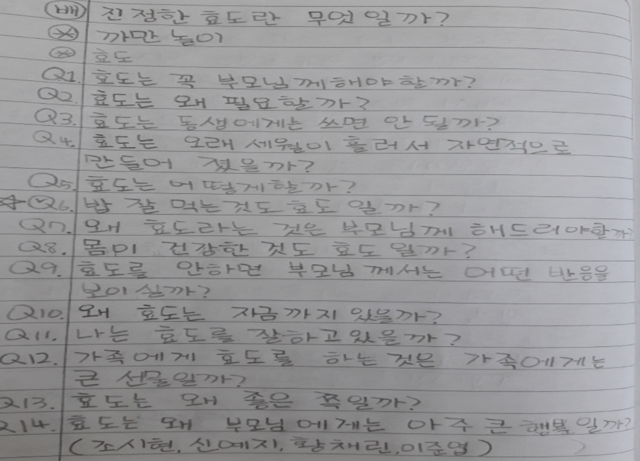 (배) 진정한 효도란 무엇일까?
까만 놀이
효도
Q1. 효도는 꼭 부모님께해야할까?
Q2. 효도는 왜 필요할까?
Q3. 효도는 동생에게는 쓰면 안 될까?
Q4. 효도는 오래 세월이 흘러서 자연적으로
만들어 졌을까?
Q5. 효도는 어떻게할까?
Q6. 밥 잘 먹는것도 효도 일까?
Q7. 왜 효도라는 것은 부모님께 해드려야할까?
Q8. 몸이 건강한 것도 효도 일까?
Q9. 효도를 안하면 부모님께서는 어떤 반응을
보이실까?
Q10. 왜 효도는 지금까지 있을까?
Q11. 나는 효도를 잘하고있을까?
Q12. 가족에게 효도를 하는것은 가족에게는
큰 선물일까?
Q13. 효도는 왜 좋은 쪽일까?
Q14. 효도는 왜 부모님에게는 아주 큰 행복일까?
(조시현, 신예지, 황채린, 이준엽)